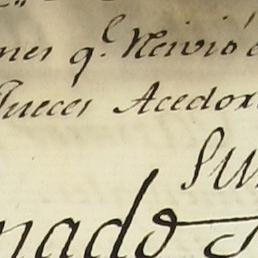 nes q.e Neivió
Jueces Acedor
Su
nado